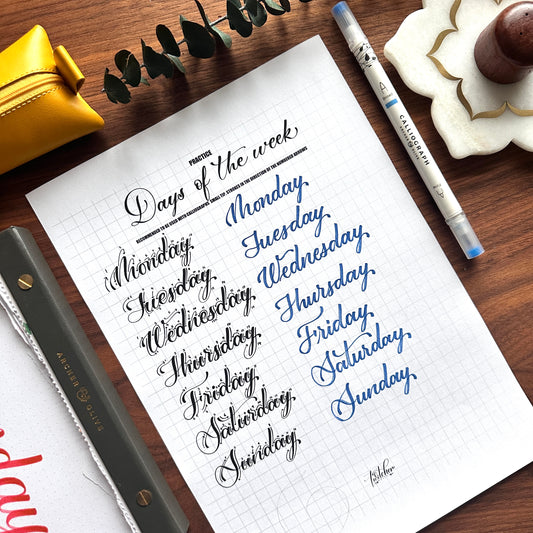 PRACTICE
Days of the week
RECOMMENDED TO BE USED WITH CALLIGRAPHY SMALL TIP. STROKES IN THE DIRECTION OF THE NUMBERED ARROWS
Monday
Tuesday
Wednesday
Thursday
Friday
Saturday
Sunday
Monday
Tuesday
Wednesday
Thursday
Friday
Saturday
Sunday
CALLIOGRAPH
ARCHER & OLIVE
day